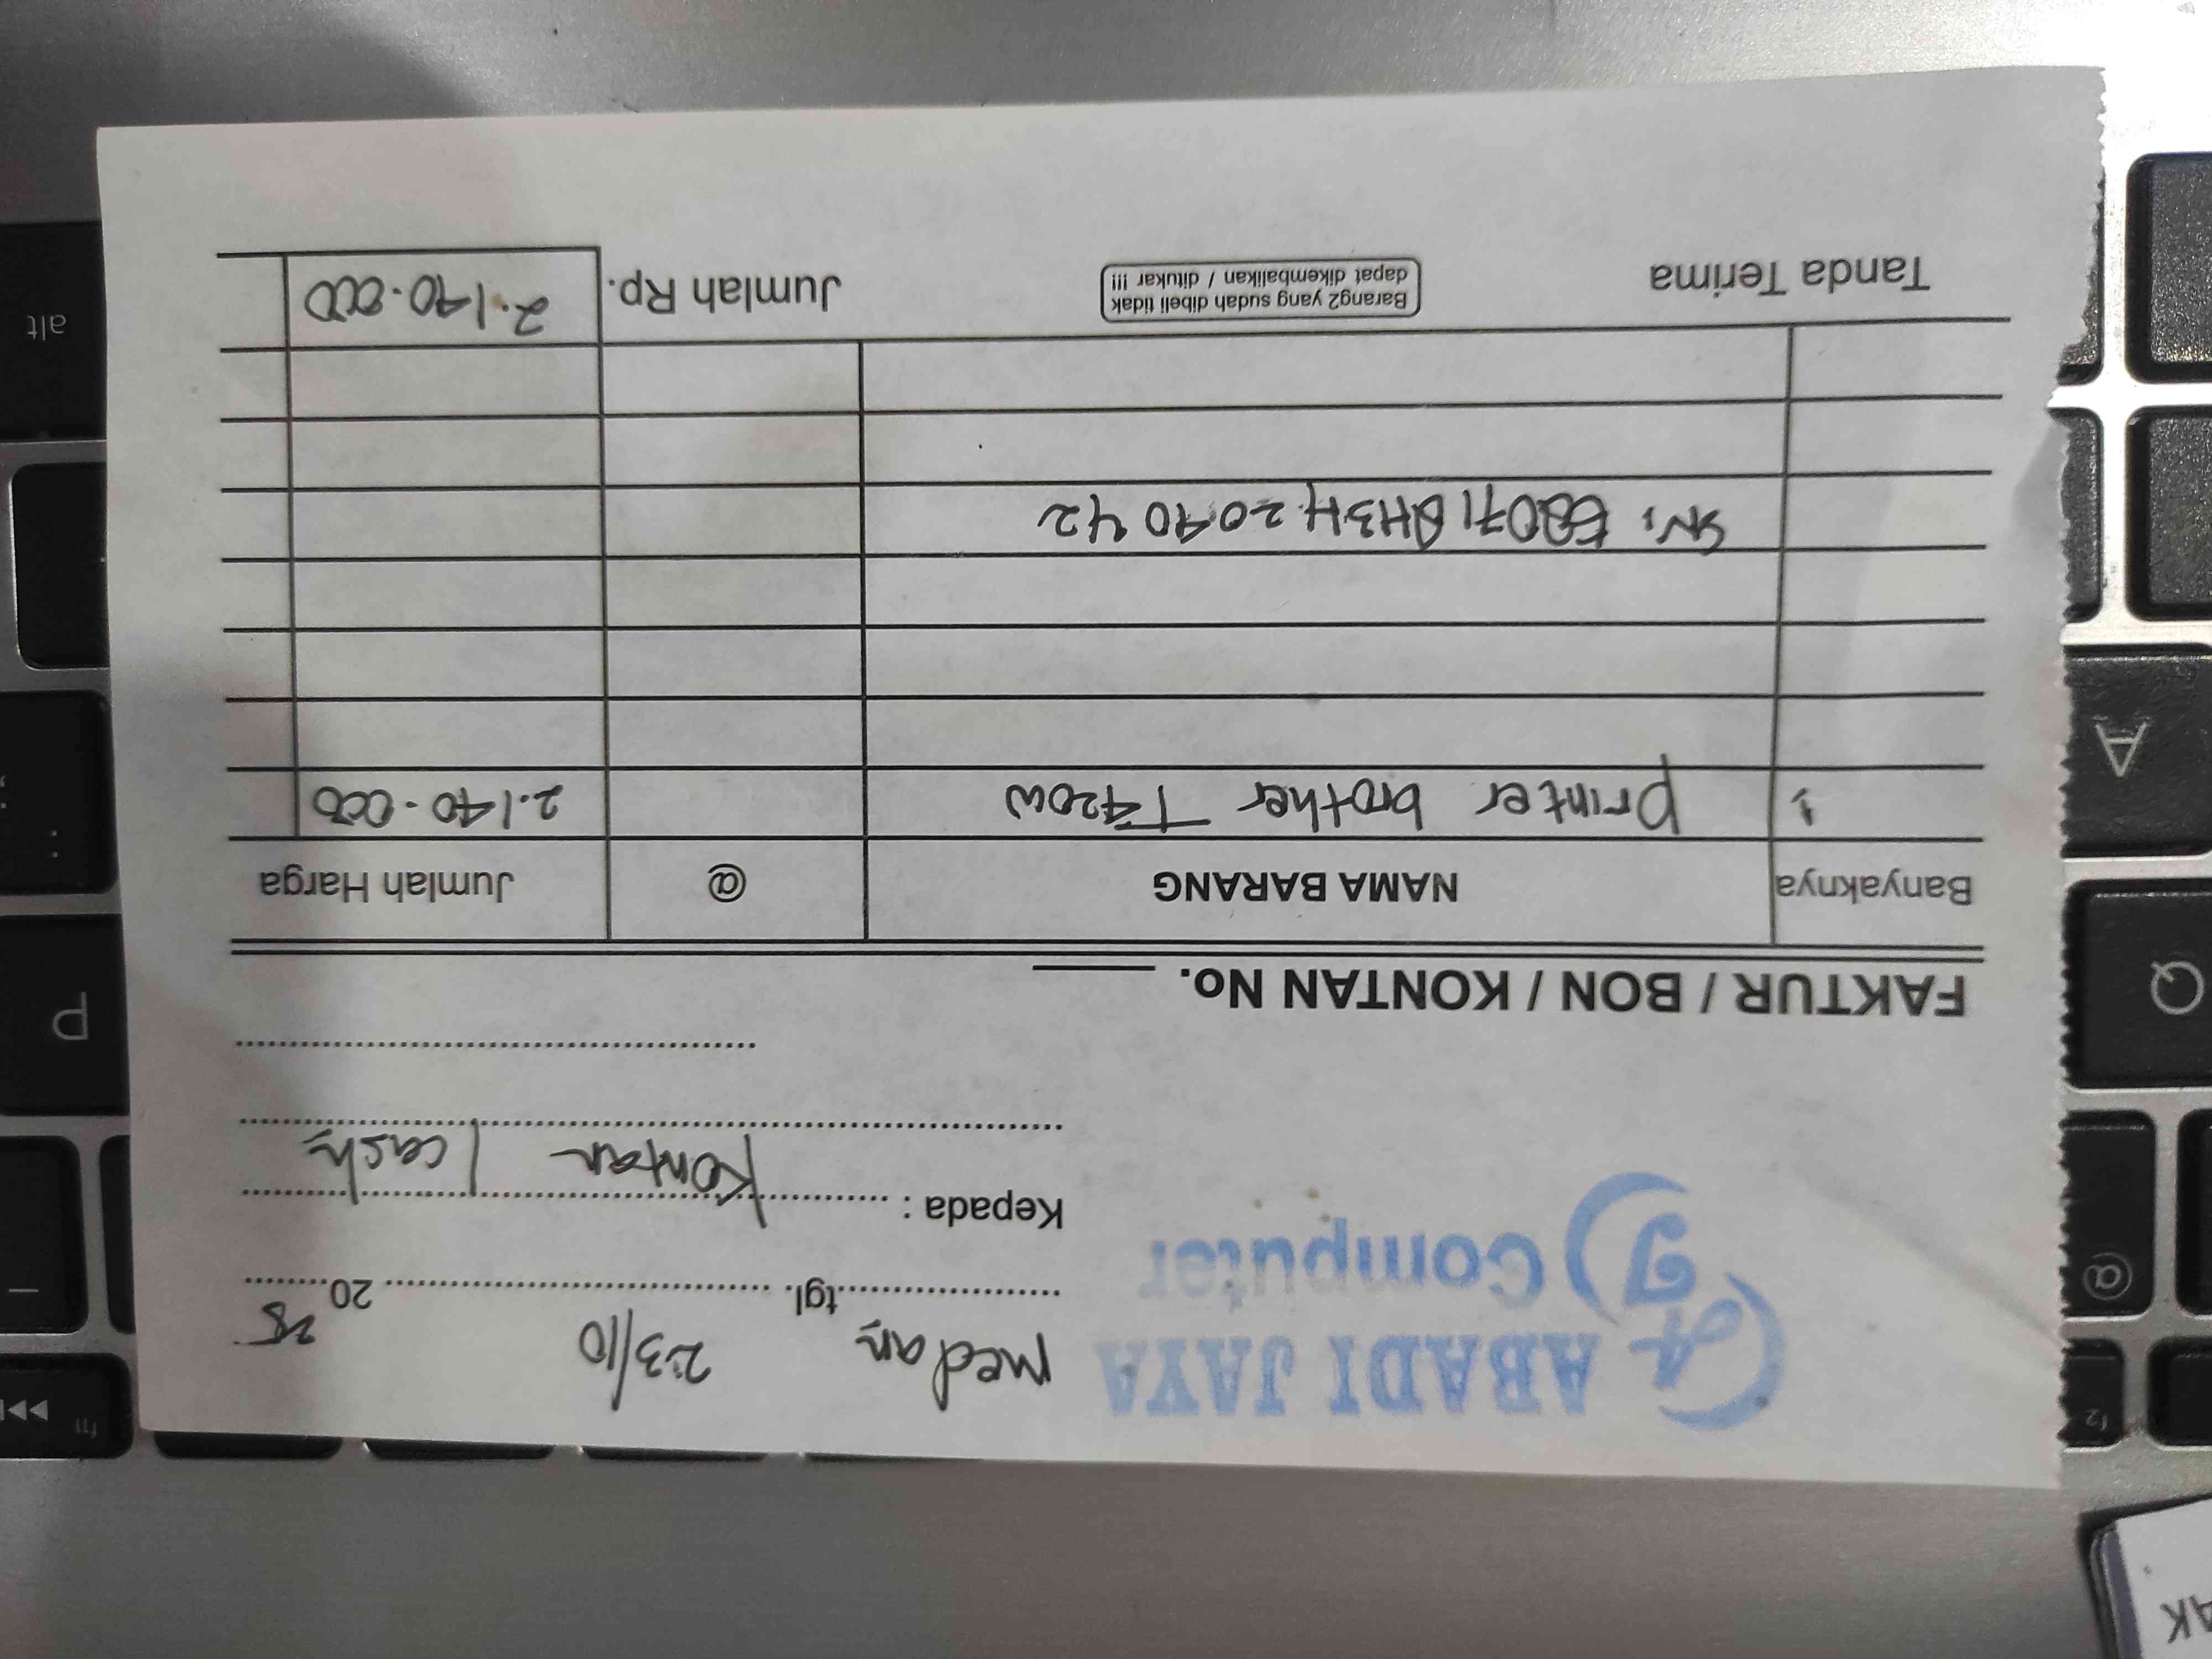 ABADI JAYA
Computer
Medan, tgl. 23/10 2025
Kepada : Kontan / cash
FAKTUR / BON / KONTAN No.
Banyaknya NAMA BARANG @ Jumlah Harga
1 printer brother T420W 2.140.000
SN:
Tanda Terima
Barang2 yang sudah dibeli tidak
dapat dikembalikan / ditukar !!!
Jumlah Rp. 2.140.000
alt
A
P
Q
@
f11
f2
AK